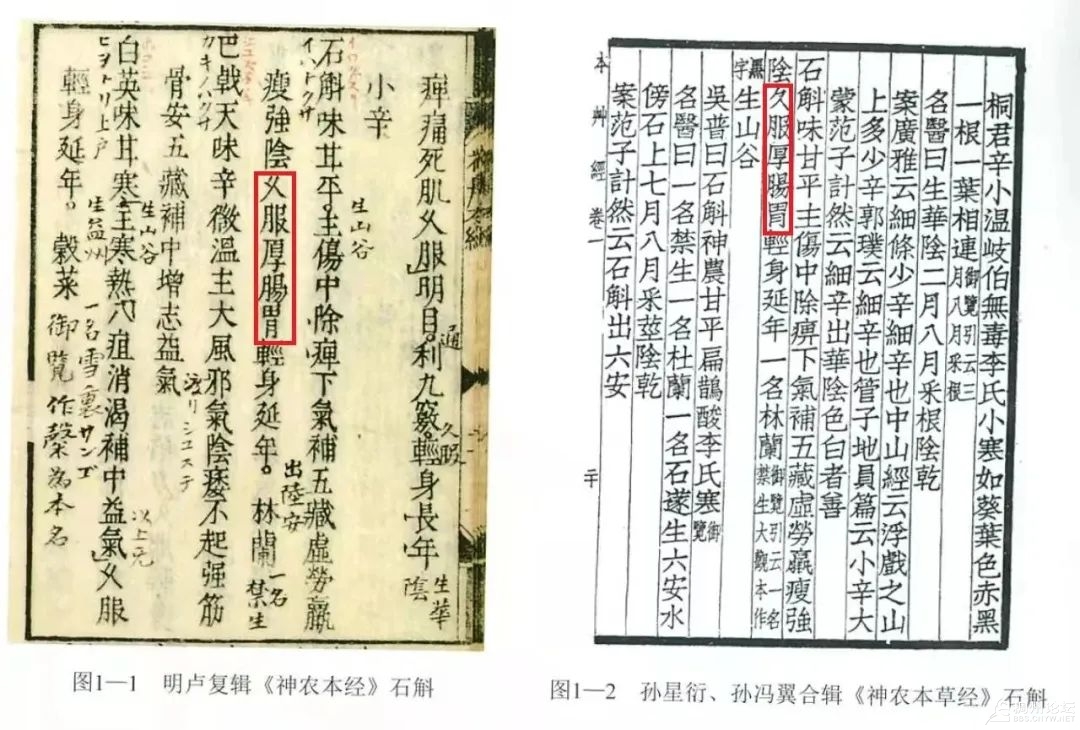 痺痛死肌乆服明目。利九竅。輕身長年
生華陰
小辛
生山谷
イハトクサ
石斛味甘平。主傷中除痺下氣補五藏虛勞羸
瘦強陰乆服厚腸胃輕身延年。林蘭
出陸安
一名禁生
カキノハグサ
巴戟天味辛微溫主大風邪氣陰痿不起强筋
骨安五藏補中增志益氣
生山谷
ヒヨトリ上戸
白英味甘寒。主寒熱八疽消渴補中益氣乆服
以上元
生益州
一名雪裏サンゴ
輕身延年。穀菜
御覽作
為本名
图1—1 明卢复辑《神农本经》石斛
桐君辛小溫岐伯無毒李氏小寒如葵葉色赤黑
一根一葉相連御覽引云三月八月采根
名醫曰生華陰二月八月采根陰乾
案廣雅云細條少辛細辛也中山經云浮戲之山
上多少辛郭璞云細辛也管子地員篇云小辛大
蒙范子計然云細辛出華陰色白者善
石斛味甘平主傷中除痹下氣補五藏虛勞羸瘦強
陰久服厚腸胃輕身延年一名林蘭御覽引云一名禁生大觀本作黑字
生山谷
吳普曰石斛神農甘平扁鵲酸李氏寒御覽
名醫曰一名禁生一名杜蘭一名石蓫生六安水
傍石上七月八月采莖陰乾
案范子計然云石斛出六安
本艸經卷一
图1—2 孙星衍、孙冯翼合辑《神农本草经》石斛
BBS.CNW.NET